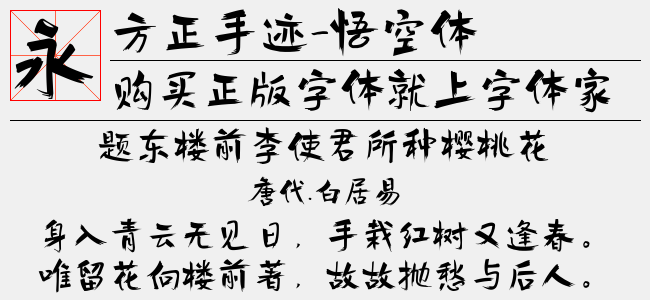 永
方正手迹-悟空体
购买正版字体就上字体家
题东楼前李使君所种樱桃花
唐代.白居易
身入青云无见日，手栽红树又逢春。
唯留花向楼前著，故故抛愁与后人。